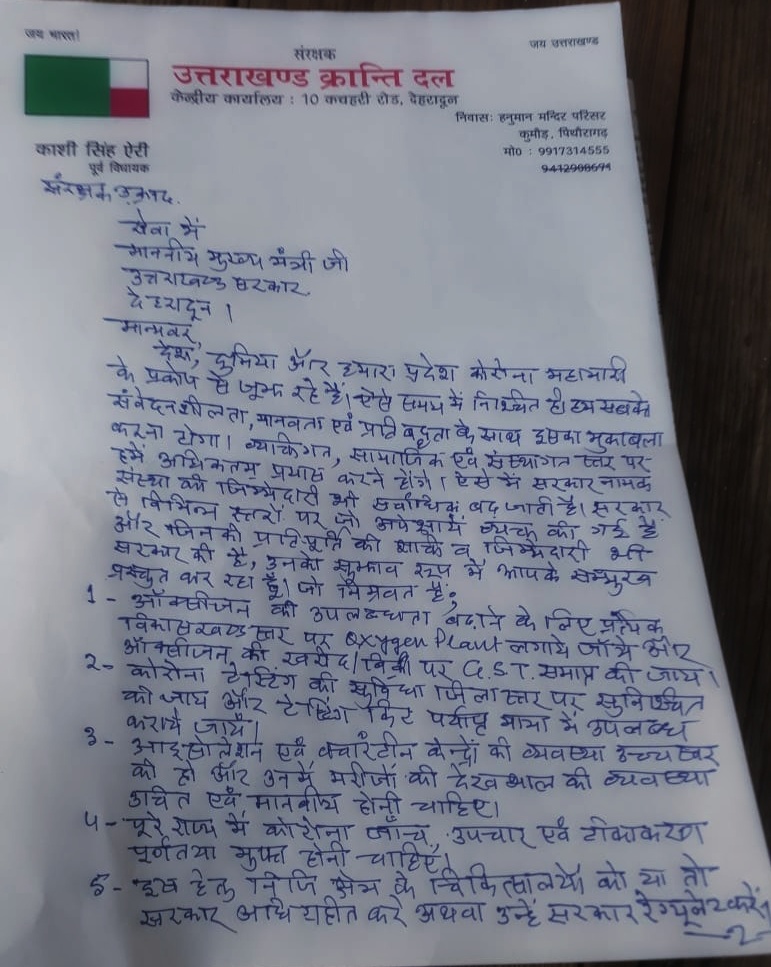 जय भारत!
जय उत्तराखण्ड
संरक्षक
उत्तराखण्ड क्रान्ति दल
केन्द्रीय कार्यालय : 10 कचहरी रोड, देहरादून
निवास: हनुमान मन्दिर परिसर
कुमौड़, पिथौरागढ़
मो0 : 9917314555
9412908691
काशी सिंह ऐरी
पूर्व विधायक
संरक्षक उक्रांद.
सेवा में
माननीय मुख्य मंत्री जी
उत्तराखण्ड सरकार
देहरादून।
मान्यवर,
देश, दुनिया और हमारा प्रदेश कोरोना महामारी
के प्रकोप से जूझ रहे हैं। ऐसे समय में निश्चित ही हम सबको
संवेदनशीलता, मानवता एवं प्रतिबद्धता के साथ इसका मुकाबला
करना होगा। व्यक्तिगत, सामाजिक एवं संस्थागत स्तर पर
हमें अधिकतम प्रयास करने होंगे। ऐसे में सरकार नामक
संस्था की जिम्मेदारी भी सर्वाधिक बढ़ जाती है। सरकार
से विभिन्न स्तरों पर जो अपेक्षायें व्यक्त की गई हैं
और जिनकी प्रतिपूर्ति की शक्ति व जिम्मेदारी भी
सरकार की है, उनको सुझाव रूप में आपके सम्मुख
प्रस्तुत कर रहा हूँ। जो निम्नवत हैं:
1- ऑक्सीजन की उपलब्धता बढ़ाने के लिए प्रत्येक
विकासखण्ड स्तर पर Oxygen Plant लगाये जायें और
ऑक्सीजन की खरीद/बिक्री पर G.S.T. समाप्त की जाय।
2- कोरोना टेस्टिंग की सुविधा जिला स्तर पर सुनिश्चित
की जाय और टेस्टिंग किट पर्याप्त मात्रा में उपलब्ध
कराये जायें।
3- आइसोलेशन एवं क्वारंटीन केन्द्रों की व्यवस्था उच्च स्तर
की हो और उनमें मरीजों की देखभाल की व्यवस्था
उचित एवं मानवीय होनी चाहिए।
4- पूरे राज्य में कोरोना जाँच, उपचार एवं टीकाकरण
पूर्णतया मुफ्त होनी चाहिए।
5- इस हेतु निजि क्षेत्र के चिकित्सालयों को या तो
सरकार अधिग्रहीत करे अथवा उन्हें सरकार रेग्यूलेट करें।
-2-